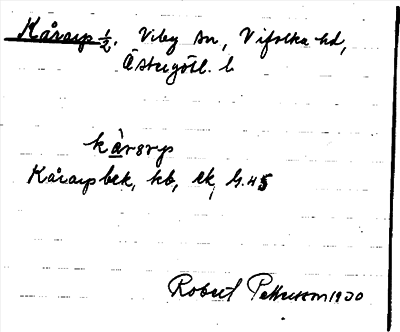 Kårarp ½. Viby sn, Vifolka hd,
Östergötl. l.
kårarp
Kårarp bek, kb, ek, G.45
Robert Pettersson 1930